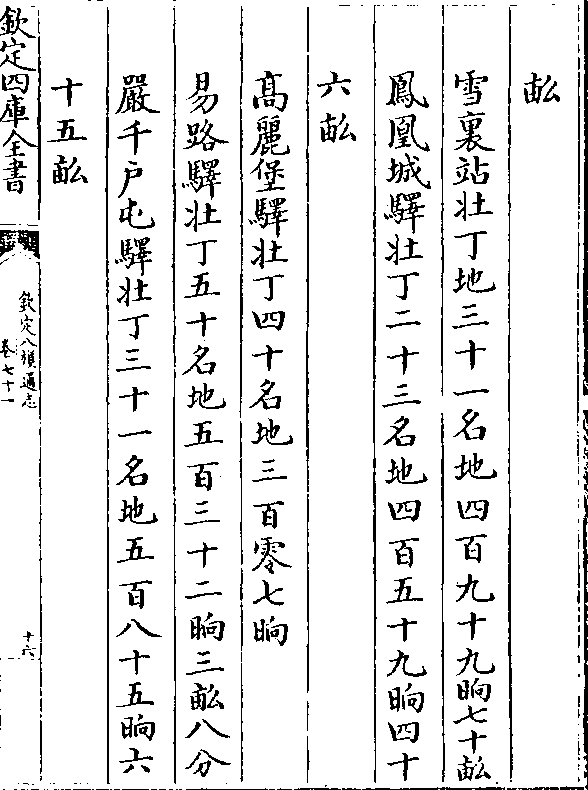 畝
雪裏站壯丁地三十一名地四百九十九晌七十畝
鳳凰城驛壯丁二十三名地四百五十九晌四十
六畝
髙麗堡驛壯丁四十名地三百零七晌
易路驛壯丁五十名地五百三十二晌三畝八分
嚴千戶屯驛壯丁三十一名地五百八十五晌六
十五畝
欽定四庫全書
欽定八旗通志
卷七十一
十六